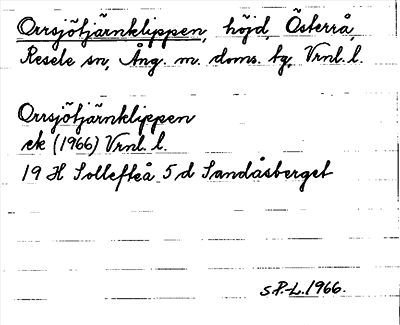 Orrsjötjärnklippen, höjd, Österrå,
Resele sn, Ång. m. doms. tg, Vrnl. l.
Orrsjötjärnklippen
ek (1966) Vrnl. l.
19 H Sollefteå 5 d Sandåsberget
S.P.-L. 1966.